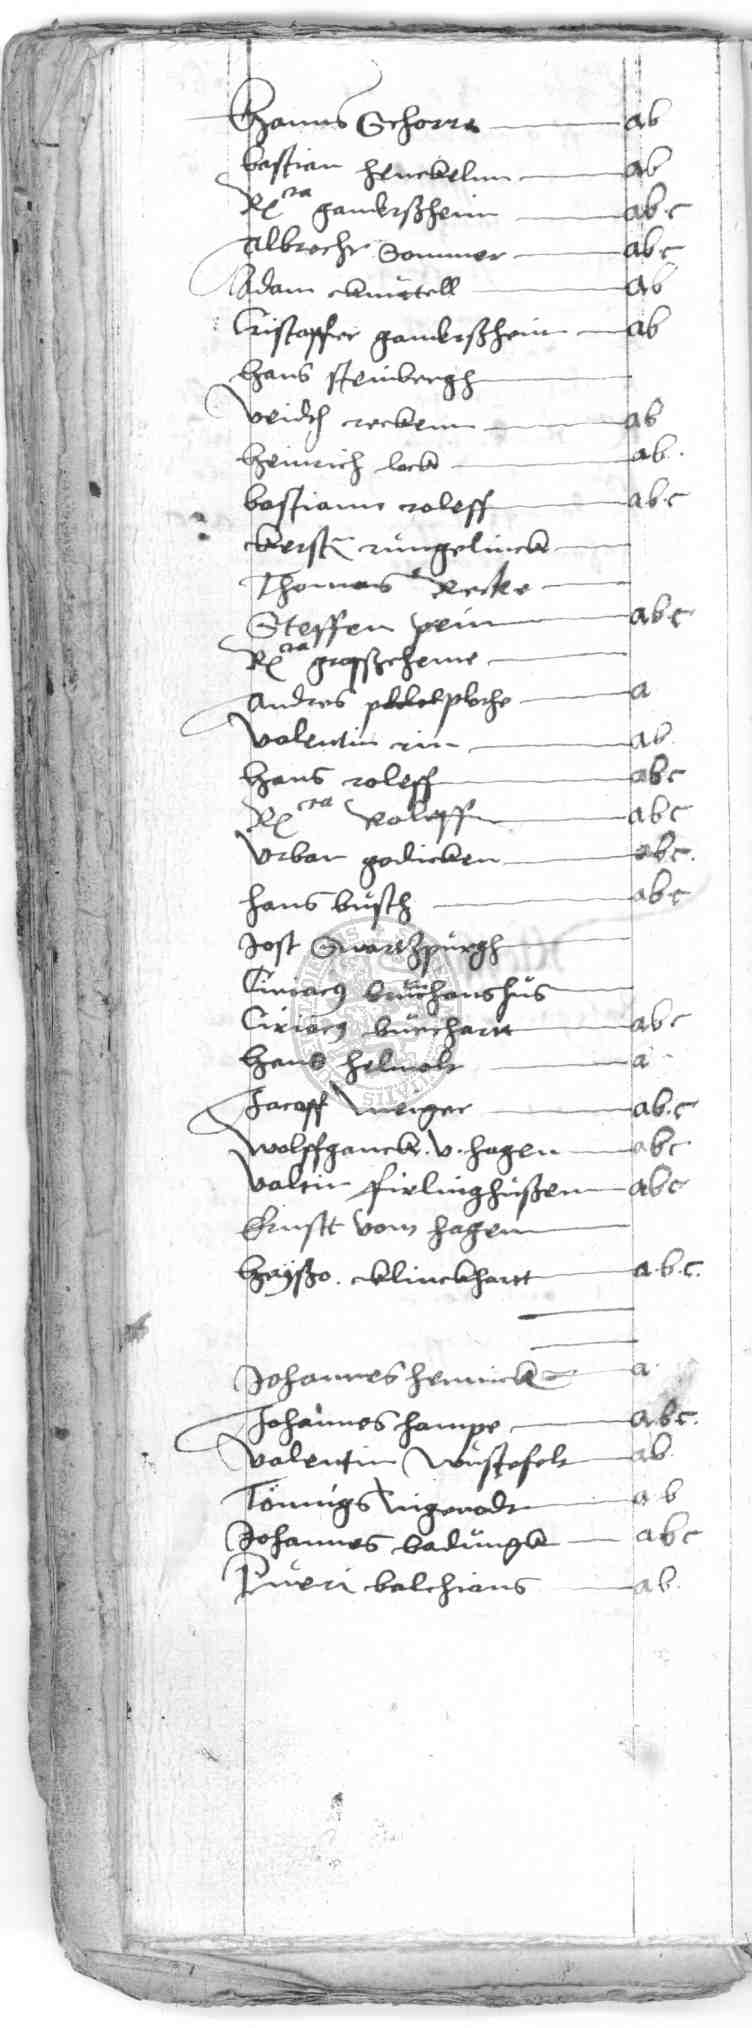 Hanns Schorre ab
bastian henckelmn ab
Rcta ganderßheim abc
Albrecht Sommer abc
Adam ab
Cristoffer ganderßheim ab
Hans steinbergh
Veidt reckenn ab
Heinrich lock ab.
bastiann roleff abc
kerstn rungelinck
Thomas Recke
Steffen pein abc
Rcta großchenne
Andres ploche a
Valentin rin ab
Hans roleff abc
Rcta Roleff abc
Urban godicken abc.
hans busch abc
Jost Swartzpurgh
Ciriacus
Ciriacus burchartt abc
Hans helmolt a
Jacoff meiger ab.c
Wolffganck. v. hagen abc
Valtin firlinghußenn abc
Ernstt vom hagen
Heyßo. klinckhartt a.b.c.
Johannes hennick a
Johannes hampe abc.
Valentin Wustefelt ab
Tonnigs ingerodt ab
Johannes badungk abc
Pueri balthians ab.